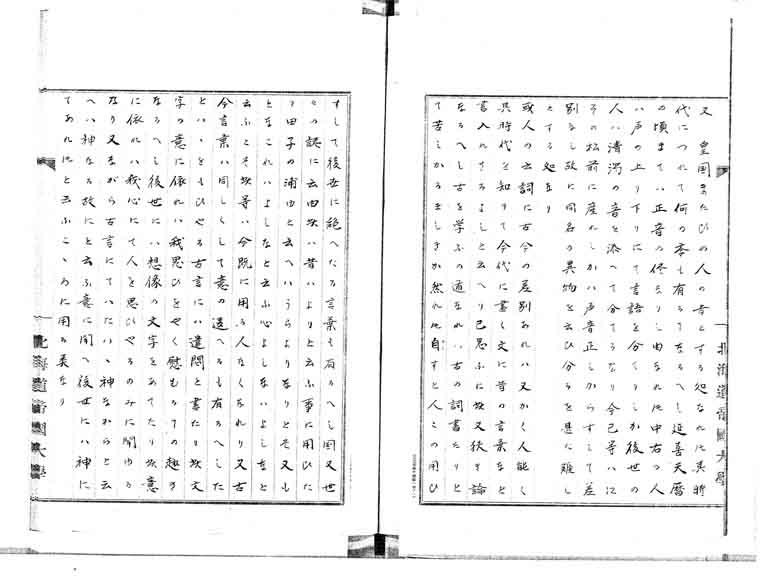 又　皇国まなびの人の音とする処なれ圧其折
代につれて何の季も有るてなるへし延喜天暦
の頃まてハ正音の侭なりし由なれ圧中右の人
ハ声の上り下りにて言語を分てりしか後世の
人ハ清濁の音を添へて分てるうになり今己等ハ江
その松前に産れしかハ声音正しからすして差
別なし故に同名の異物を云ひ分ろを甚た難し
とする処なり
或人の云詞に古今の差別あれハ又かく人能く
其時代を知りて今代に書く文に昔の言葉なと
書入れさるよしと云へり己思ふに炊又狭き論
なるへし古を学ふの道なれハ古の詞書たりと
て苦しかるましきか然れ圧自すと人この用ひ
すして後世に絶へたる言葉も有るへし因又世
々の認に云由炊ハ昔ハよりと云ふ事に用ひた
り田子の浦由と云へハうらよりなりとそ又も
となこれハよしなと云ふ心よしないよしなと
云ふとそ炊等ハ今既に用る人なくなれり又古
今言葉ハ同しくして意の違へるも有るへした
とハゝをもひやる古言にハ遣悶と書たり炊文
字の意に依れハ我思ひをやく慰むるての趣き
なるへし後世にハ想像の文字をあてたり炊意
に依れハ我心にて人を思ひやるのみに聞ゆる
なり又なから古言にてハたハゝ神なからと云
へハ神なる故にと云ふ意に聞へ後世にハ神に
てあれ圧と云ふこゝろに用る美なり
北海道帝国大學
北海道帝国大學